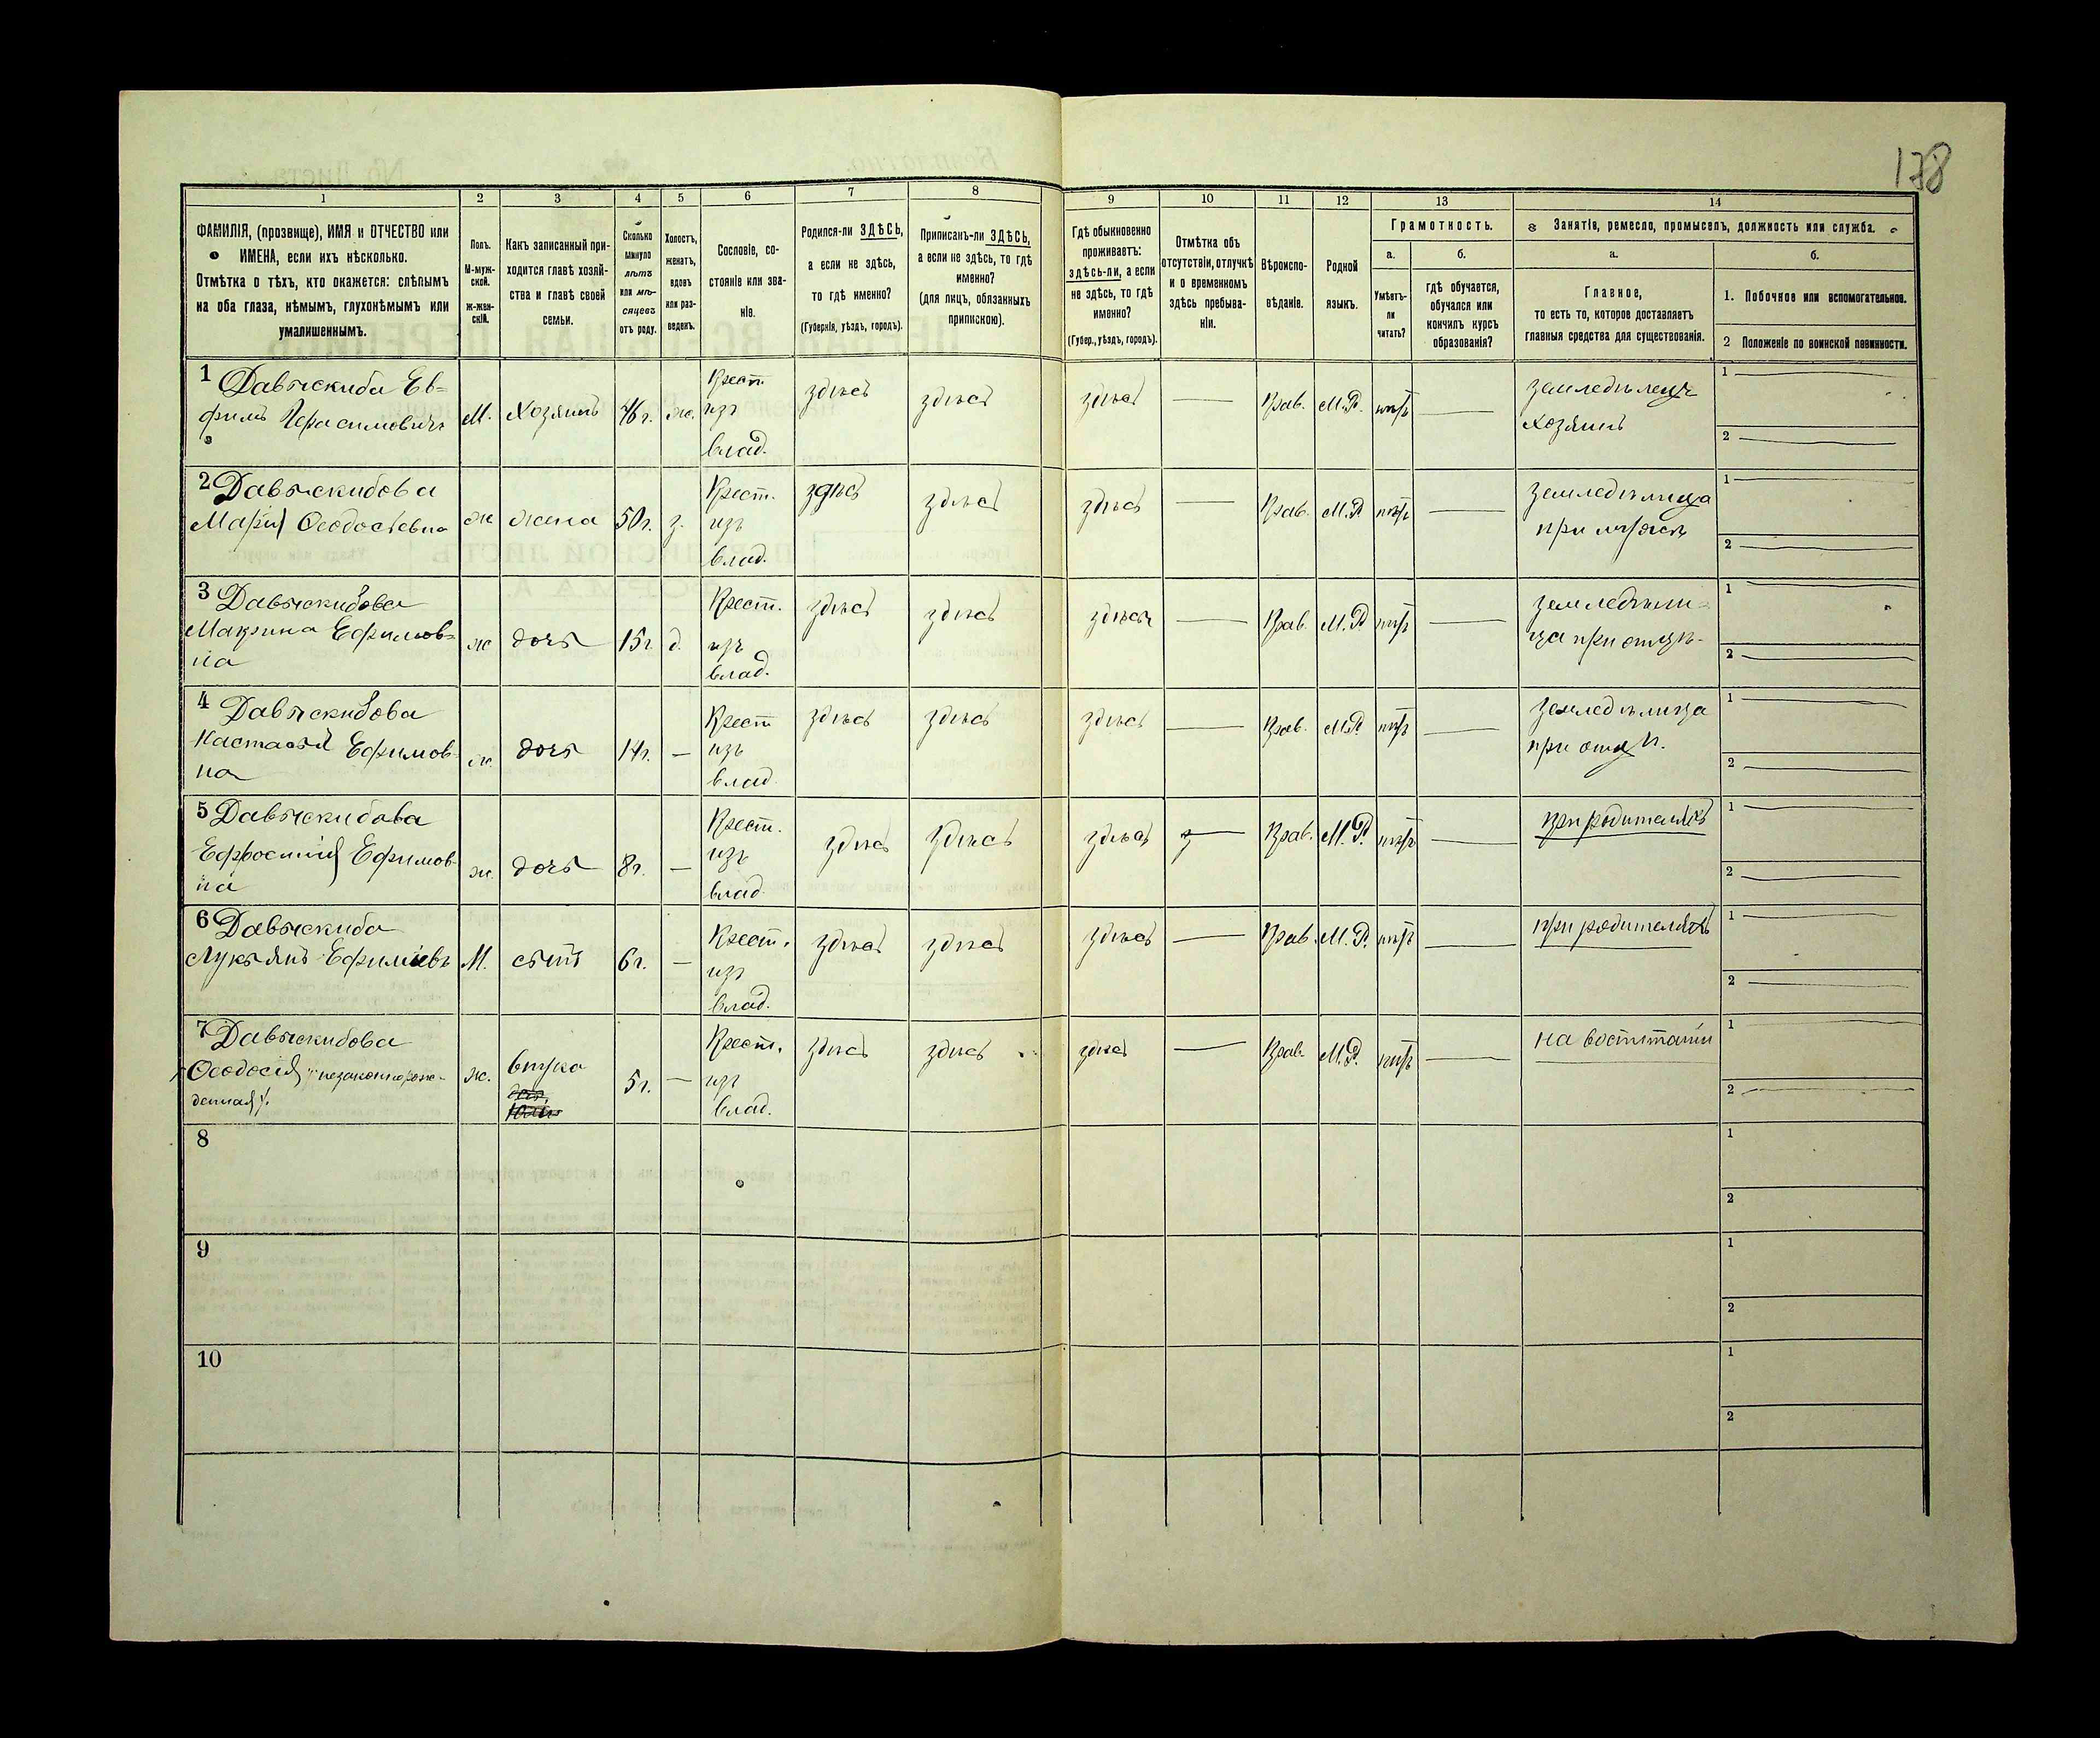 178
1
2
3
4
5
6
7
8
9
10
11
12
13
14
ФАМИЛІЯ, (прозвище), ИМЯ и ОТЧЕСТВО или
ИМЕНА, если ихъ нѣсколько.
Отмѣтка о тѣхъ, кто окажется: слѣпымъ
на оба глаза, нѣмымъ, глухонѣмымъ или
умалишеннымъ.
Полъ.
М-муж-
ской.
Ж-жен-
скій.
Какъ записанный при-
ходится главѣ хозяй-
ства и главѣ своей
семьи.
Сколько
минуло
лѣтъ
или мѣ-
сяцевъ
отъ роду.
Холостъ,
женатъ,
вдовъ
или раз-
веденъ.
Сословіе, со-
стояніе или зва-
ніе.
Родился-ли ЗДѢСЬ,
а если не здѣсь,
то гдѣ именно?
(Губернія, уѣздъ, городъ).
Приписанъ-ли ЗДѢСЬ,
а если не здѣсь, то гдѣ
именно?
(для лицъ, обязанныхъ
припискою).
Гдѣ обыкновенно
проживаетъ:
здѣсь-ли, а если
не здѣсь, то гдѣ
именно?
(Губер., уѣздъ, городъ).
Отмѣтка объ
отсутствіи, отлучкѣ
и о временномъ
здѣсь пребыва-
ніи.
Вѣроиспо-
вѣданіе.
Родной
языкъ.
Грамотность.
а.
Умѣетъ-
ли
читать?
б.
гдѣ обучается,
обучался или
кончилъ курсъ
образованія?
Занятія, ремесло, промыселъ, должность или служба.
а.
Главное,
то есть то, которое доставляетъ
главныя средства для существованія.
б.
1. Побочное или вспомогательное.
2 Положеніе по воинской повинности.
1 Давыскиба Ев-
фимъ Герасимовичъ
М. Хозяинъ 46 г. ж. Крест. изъ влад. здѣсь здѣсь здѣсь — Прав. М.Р. нѣтъ — земледѣлецъ хозяинъ 1 — 2 —
2 Давыскибова
Марія Ѳеодосіевна
ж жена 50 г. з. Крест. изъ влад. здѣсь здѣсь здѣсь — Прав. М.Р. нѣтъ — земледѣлица при мужѣ 1 — 2 —
3 Давыскибова
Макрина Ефимов-
на
ж дочь 15 г. д. Крест. изъ влад. здѣсь здѣсь здѣсь — Прав. М.Р. нѣтъ — земледѣли-
ца при отцѣ. 1 — 2 —
4 Давыскибова
Настасья Ефимов-
на
ж. дочь 14 г. — Крест изъ влад. здѣсь здѣсь здѣсь — Прав. М.Р. нѣтъ — земледѣлица при отцѣ. 1 — 2 —
5 Давыскибова
Ефросинія Ефимов-
на
ж. дочь 8 г. — Крест. изъ влад. здѣсь здѣсь здѣсь — Прав. М.Р. нѣтъ — при родителяхъ 1 — 2 —
6 Давыскиба
Лукьянъ Ефимовъ
М. сынъ 6 г. — Крест. изъ влад. здѣсь здѣсь здѣсь — Прав. М.Р. нѣтъ — при родителяхъ 1 — 2 —
7 Давыскибова
Ѳеодосія "незаконнорож-
денная".
ж. внука 5 г. — Крест. изъ влад. здѣсь здѣсь здѣсь — Прав. М.Р. нѣтъ — на воспитаніи 1 — 2 —
8 1
2
9 1
2
10 1
2